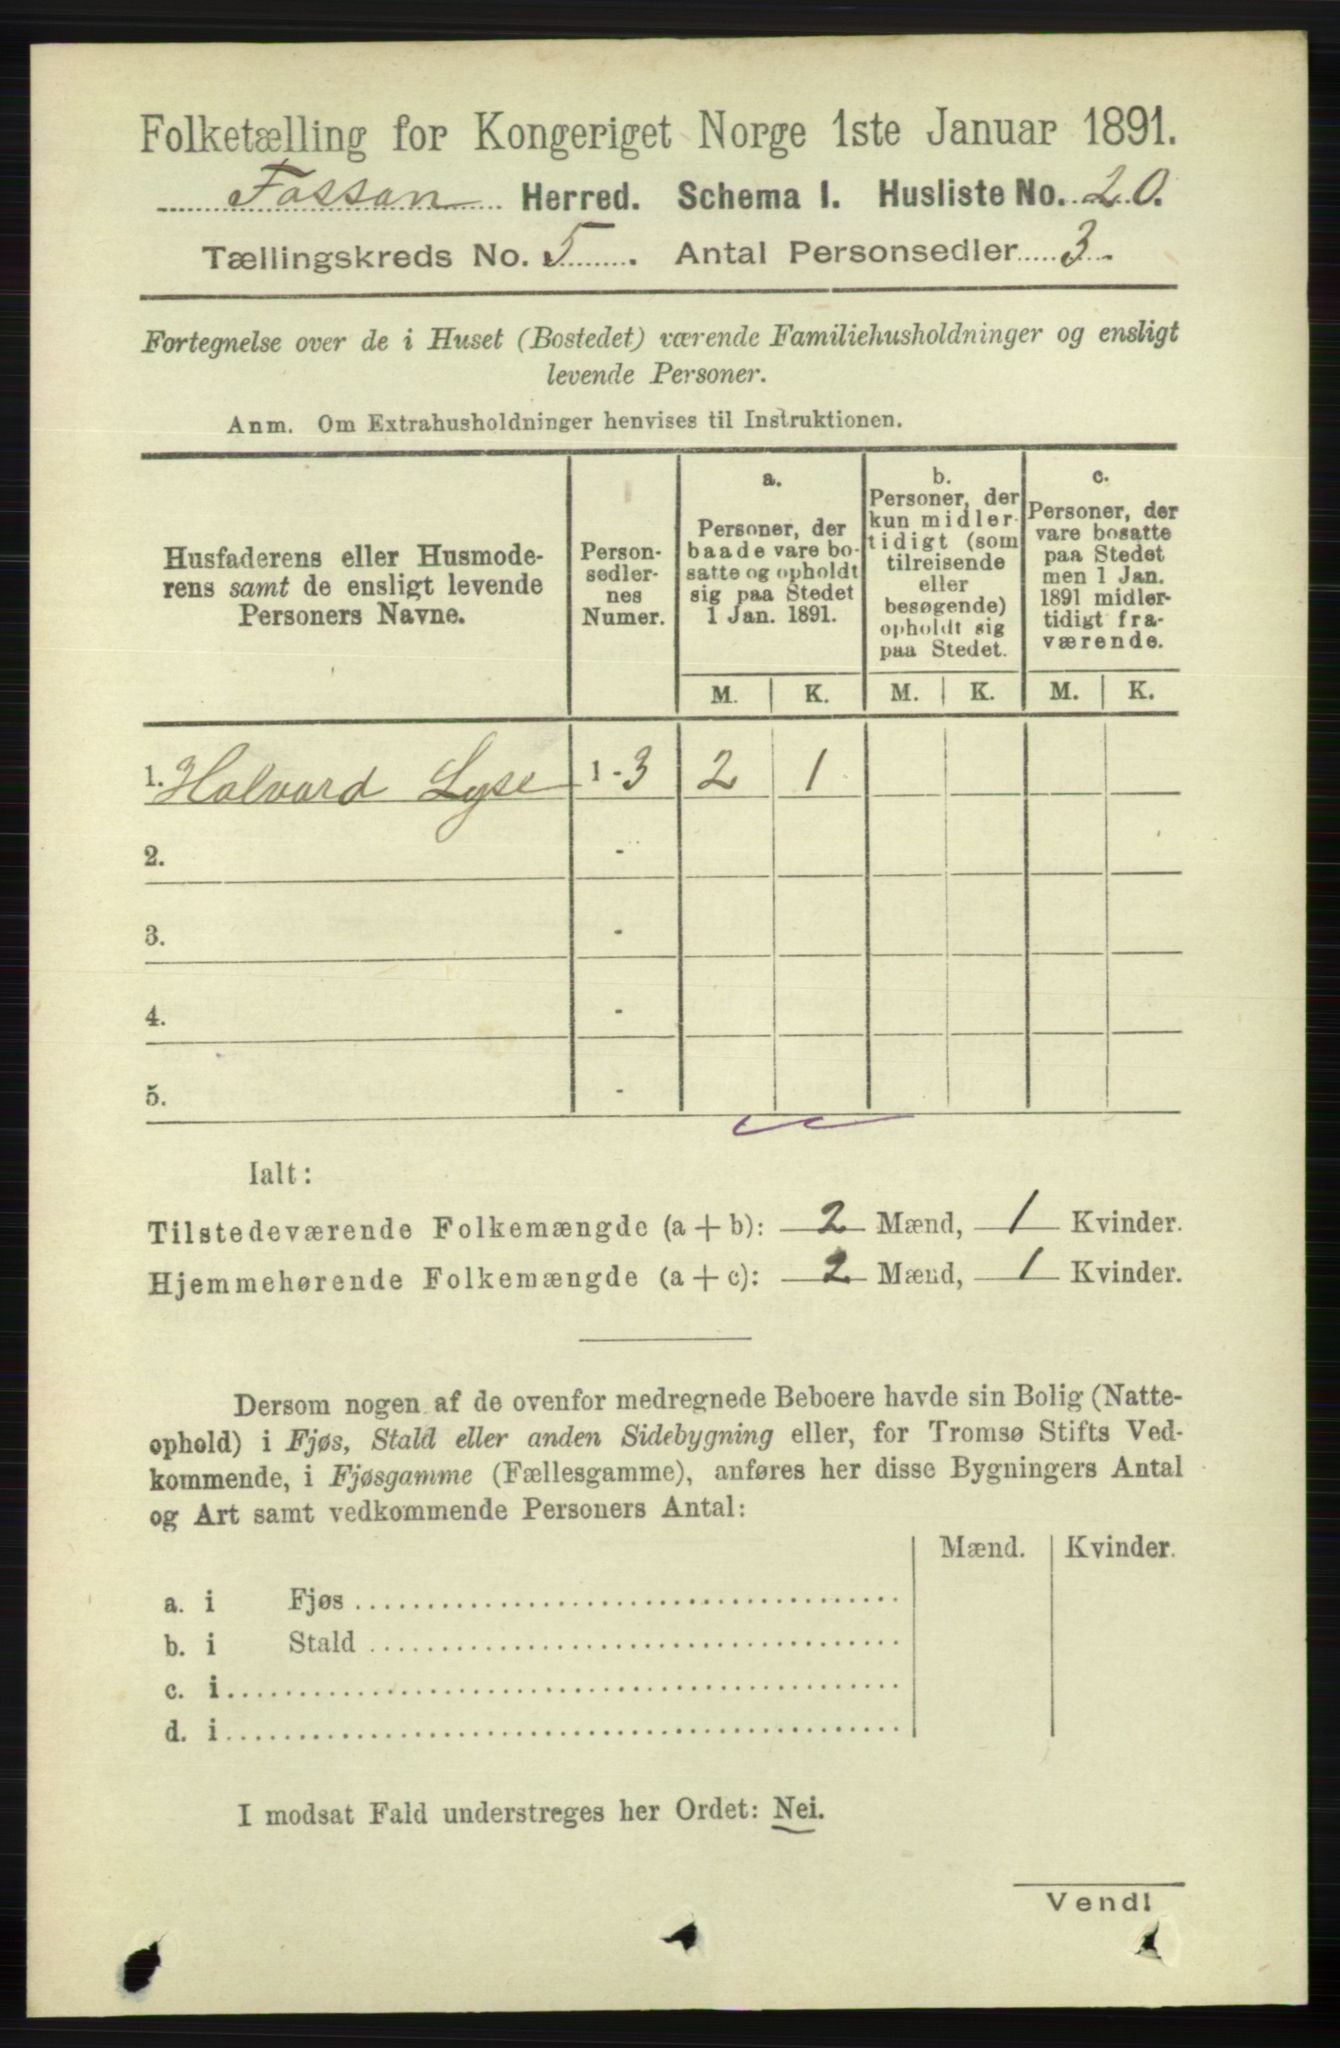 Folketælling for Kongeriget Norge 1ste Januar 1891.
Fossan Herred. Schema I. Husliste No. 20.
Tællingskreds No. 5. Antal Personsedler 3.
Fortegnelse over de i Huset (Bostedet) værende Familiehusholdninger og ensligt
levende Personer.
Anm. Om Extrahusholdninger henvises til Instruktionen.
Husfaderens eller Husmode-
rens samt de ensligt levende
Personers Navne.
Person-
sedler-
nes
Numer.
a.
Personer, der
baade vare bo-
satte og opholdt
sig paa Stedet
1 Jan. 1891.
b.
Personer, der
kun midler-
tidigt (som
tilreisende
eller
besøgende)
opholdt sig
paa Stedet.
c.
Personer, der
vare bosatte
paa Stedet
men 1 Jan.
1891 midler-
tidigt fra-
værende.
M. K. M. K. M. K.
1. Halvard Lyse 1-3 2 1
2. -
3. -
4. -
5. -
Ialt:
Tilstedeværende Folkemængde (a+b): 2 Mænd, 1 Kvinder.
Hjemmehørende Folkemængde (a+c): 2 Mænd, 1 Kvinder.
Dersom nogen af de ovenfor medregnede Beboere havde sin Bolig (Natte-
ophold) i Fjøs, Stald eller anden Sidebygning eller, for Tromsø Stifts Ved-
kommende, i Fjøsgamme (Fællesgamme), anføres her disse Bygningers Antal
og Art samt vedkommende Personers Antal:
Mænd. Kvinder.
a. i Fjøs
b. i Stald
c. i
d. i
I modsat Fald understreges her Ordet: Nei.
Vend!